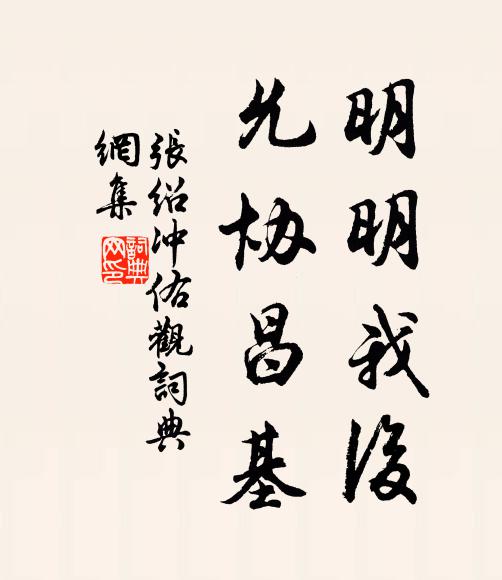 明明我後
允协昌基
張紹沖佑觀詞典
網集
詞典
网印